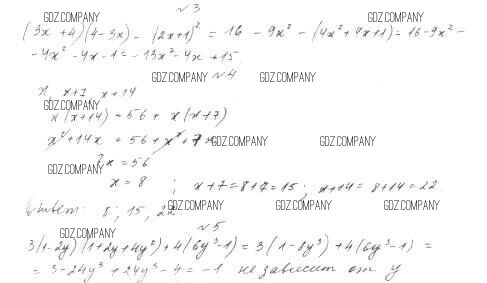 № 3
GDZ.COMPANY GDZ.COMPANY
(3x + 4)(4 - 3x) - (2x + 1)² = 16 - 9x² - (4x² + 4x + 1) = 16 - 9x² -
- 4x² - 4x - 1 = - 13x² - 4x + 15
GDZ.COMPANY GDZ.COMPANY
№ 4
x, x+7, x+14
GDZ.COMPANY
x(x+14) = 56 + x(x+7)
x² + 14x = 56 + x² + 7x
GDZ.COMPANY GDZ.COMPANY
7x = 56
GDZ.COMPANY
x = 8 ; x+7 = 8+7 = 15; x+14 = 8+14 = 22
Ответ: 8; 15; 22
GDZ.COMPANY GDZ.COMPANY GDZ.COMPANY
№ 5
GDZ.COMPANY
3(1-2y)(1+2y+4y²) + 4(6y³-1) = 3(1-8y³) + 4(6y³-1) =
= 3 - 24y³ + 24y³ - 4 = -1 не зависит от y